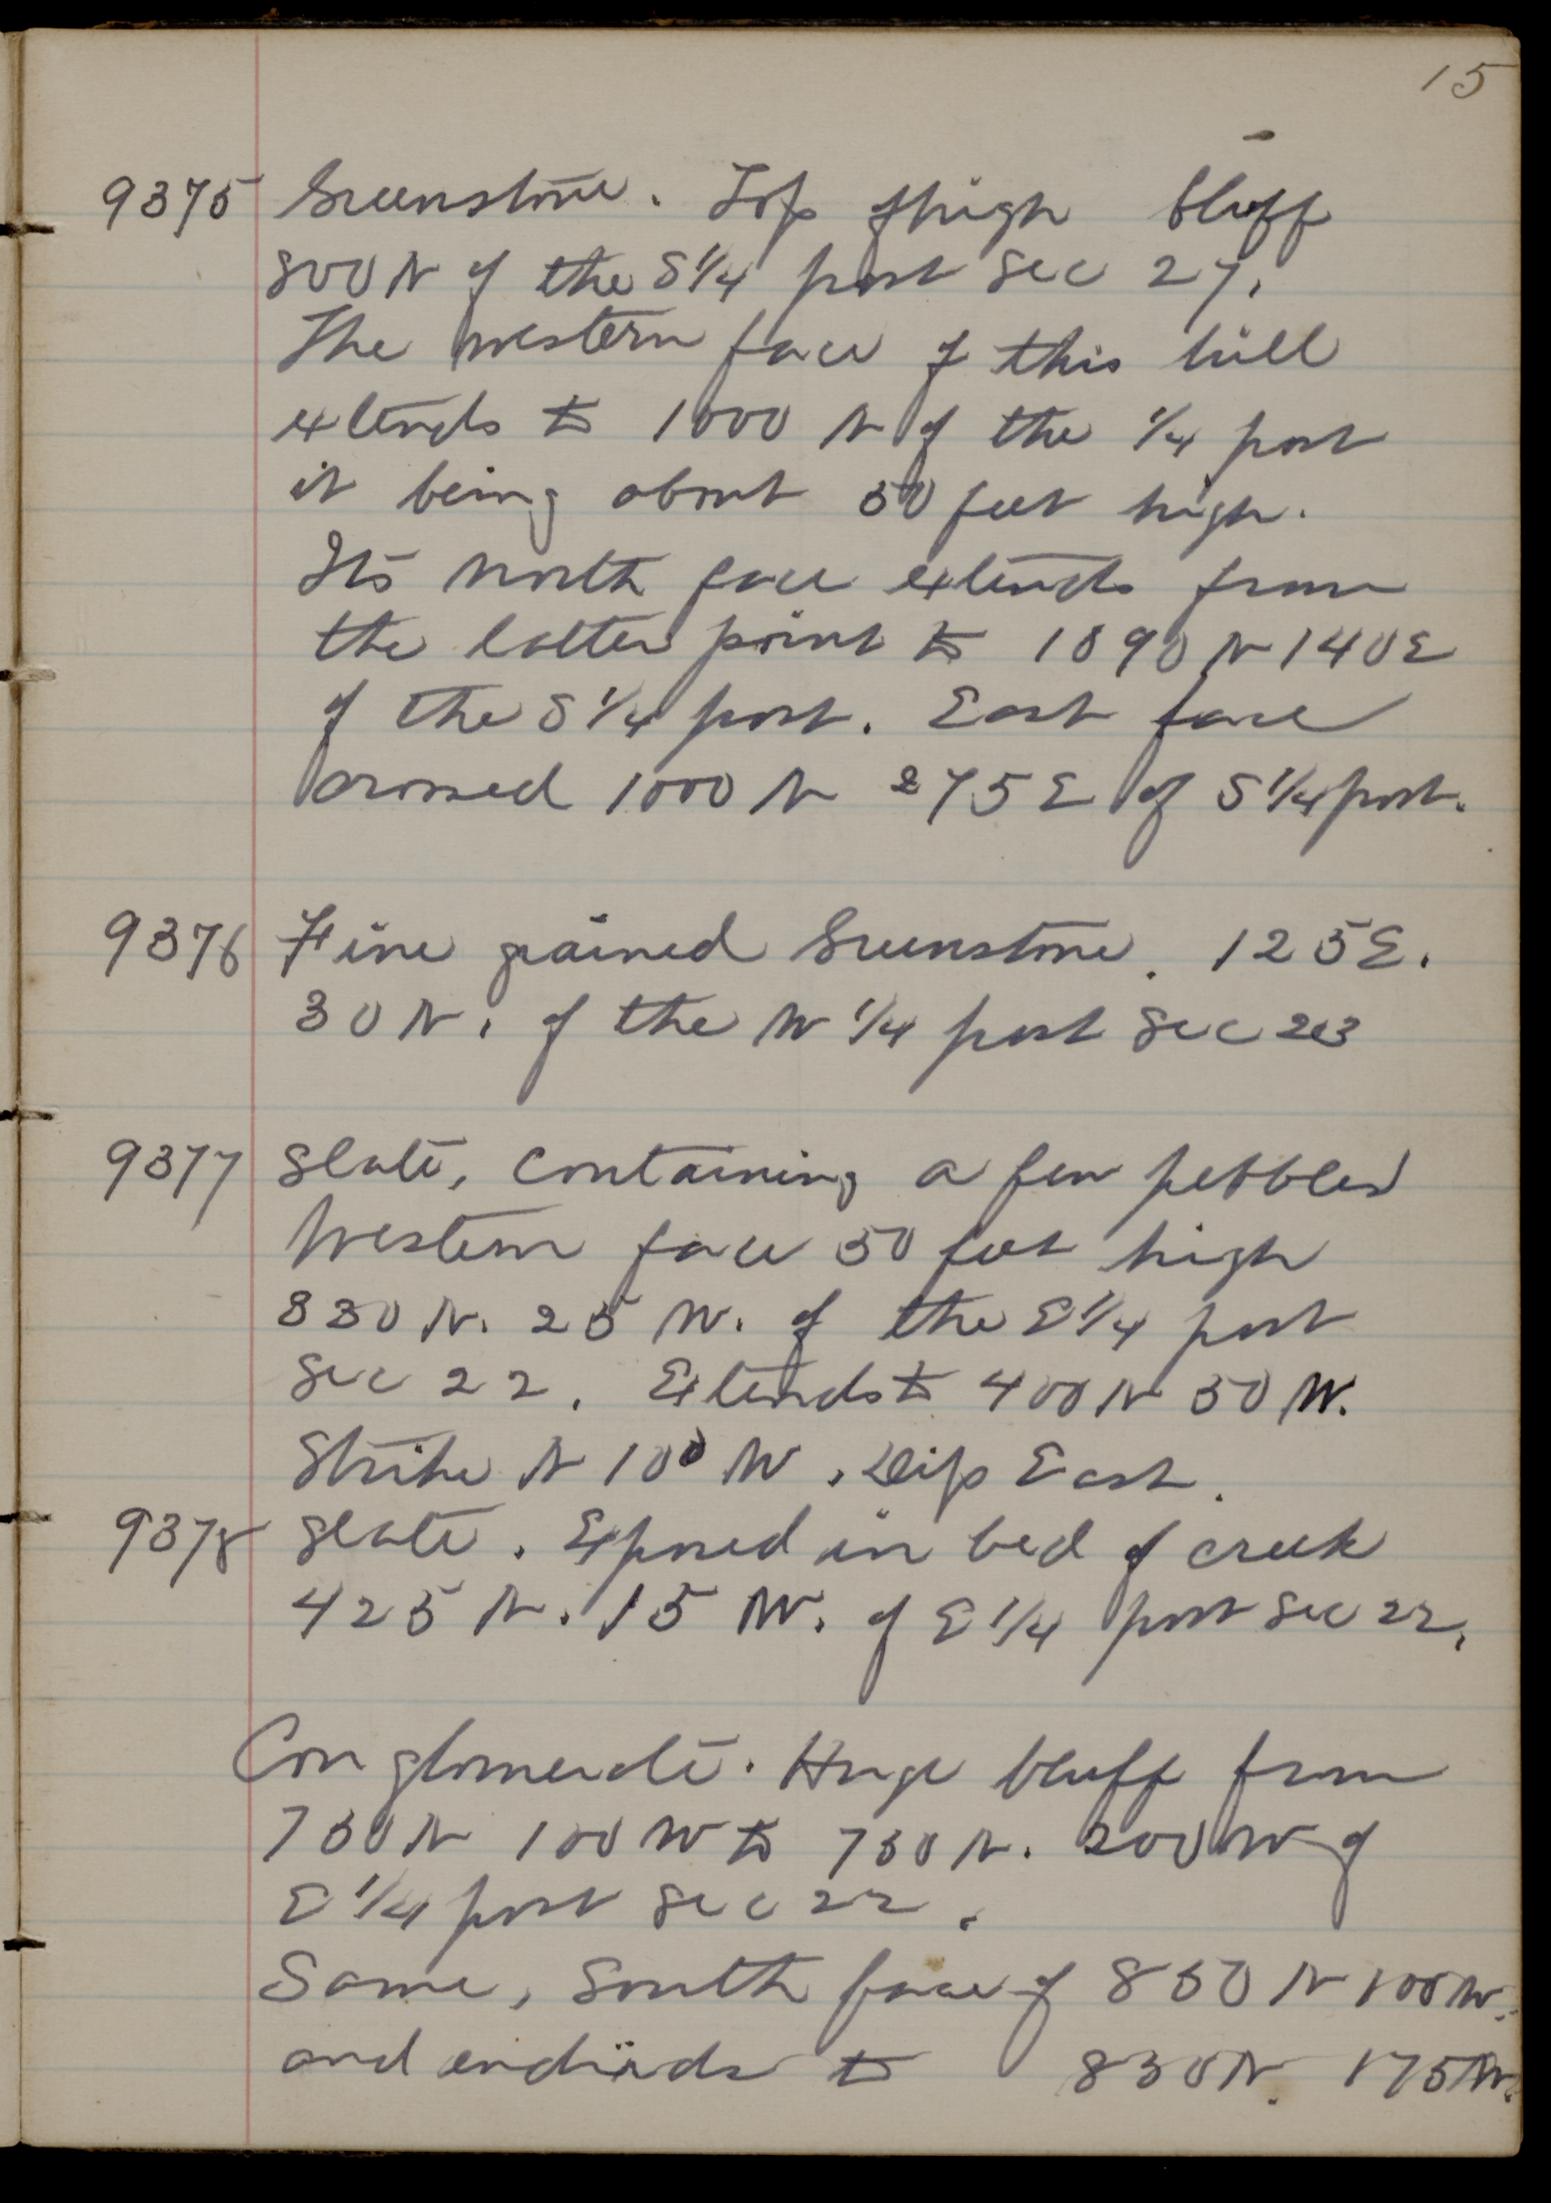 15
9375 Greenstone. Top of high bluff
800 N of the S 1/4 post Sec 27.
The western face of this hill
extends to 1000 N of the 1/4 post
it being about 50 feet high.
Its north face extends from
the latter point to 1090 N 140 E
of the S 1/4 post. East face
crossed 1000 N 275 E of S 1/4 post.
9376 Fine grained Greenstone. 125 E.
30 N. of the W 1/4 post Sec 23
9377 Slate, containing a few pebbles
Western face 50 feet high
830 N. 25 W. of the E 1/4 post
Sec 22. Extends to 400 N 50 W.
Strike N 10° W. Dip East.
9378 Slate. Exposed in bed of creek
425 N. 15 W. of E 1/4 post Sec 22.
Conglomerate. Huge bluff from
750 N 100 W to 750 N. 200 W of
E 1/4 post Sec 22.
Same, South face of 850 N 100 W.
and to 830 N. 175 W.